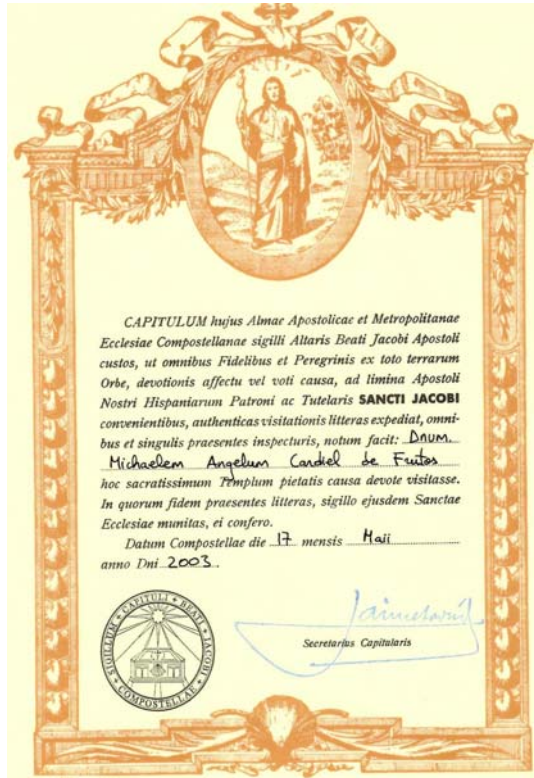 CAPITULUM hujus Almae Apostolicae et Metropolitanae
Ecclesiae Compostellanae sigilli Altaris Beati Jacobi Apostoli
custos, ut omnibus Fidelibus et Peregrinis ex toto terrarum
Orbe, devotionis affectu vel voti causa, ad limina Apostoli
Nostri Hispaniarum Patroni ac Tutelaris SANCTI JACOBI
convenientibus, authenticas visitationis litteras expediat, omni-
bus et singulis praesentes inspecturis, notum facit: Dnum.
Michaelem Angelum Cardiel de Frutos
hoc sacratissimum Templum pietatis causa devote visitasse.
In quorum fidem praesentes litteras, sigillo ejusdem Sanctae
Ecclesiae munitas, ei confero.
Datum Compostellae die 17 mensis Maii
anno Dni 2003.
SIGILLUM CAPITULI BEATI JACOBI COMPOSTELLAE
Secretarius Capitularis